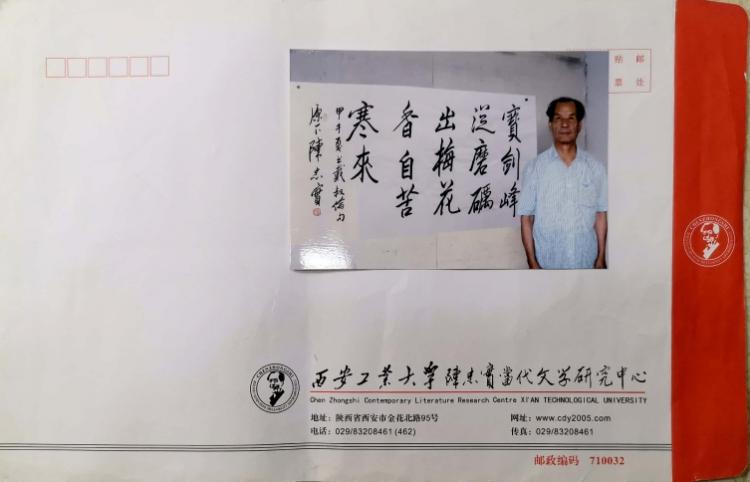 贴 邮
票 处
寶劍峰
從磨礪
出梅花
香自苦
寒來
甲午夏
原下陳忠實
CHENZHONGSHI
西安工业大学陳忠實當代文学研究中心
Chen Zhongshi Contemporary Literature Research Centre XI'AN TECHNOLOGICAL UNIVERSITY
地址：陕西省西安市金花北路95号 网址：www.cdy2005.com
电话：029/83208461 (462) 传真：029/83208461
邮政编码 710032